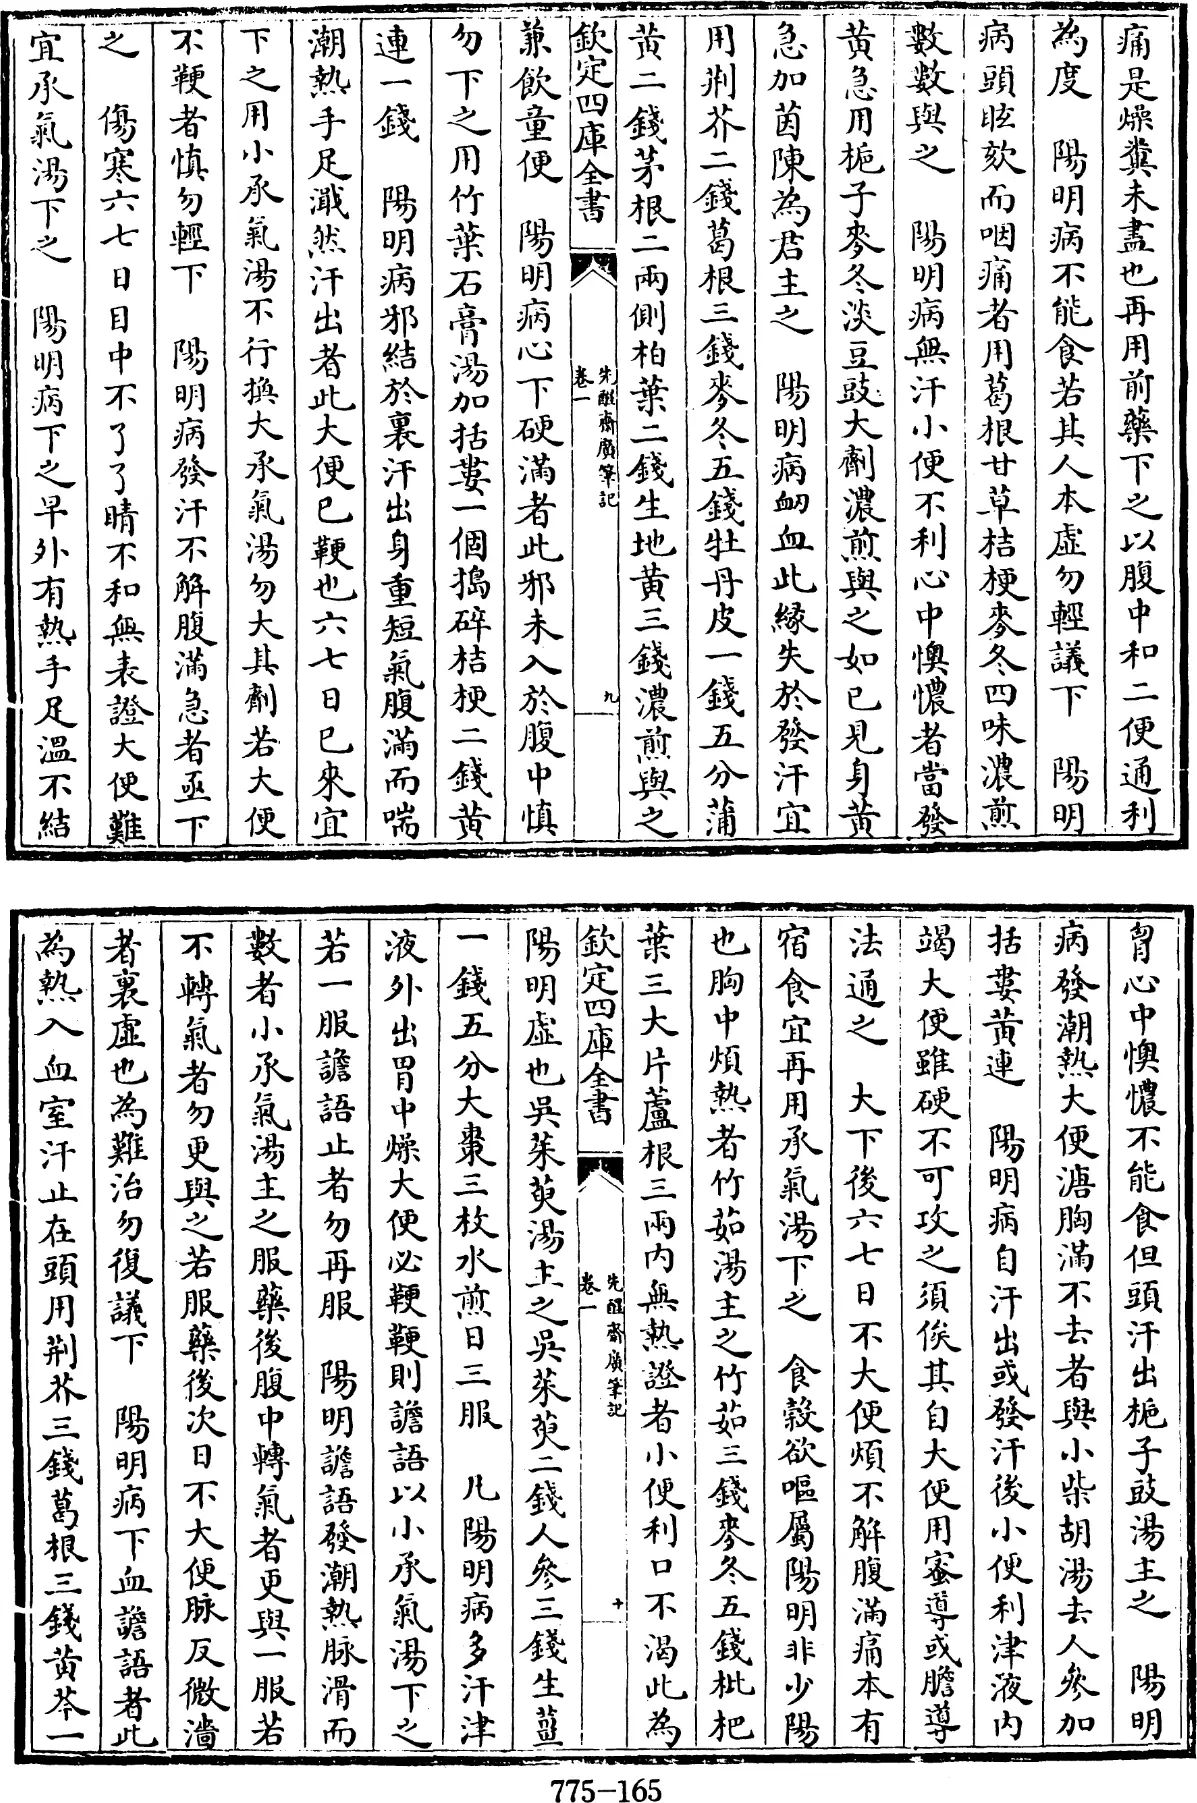 痛是燥糞未盡也再用前藥下之以腹中和二便通利
為度　陽明病不能食若其人本虛勿輕議下　陽明
病頭眩欬而咽痛者用葛根甘草桔梗麥冬四味濃煎
數數與之　陽明病無汗小便不利心中懊憹者當發
黃急用梔子麥冬淡豆豉大劑濃煎與之如已見身黃
急加茵陳為君主之　陽明病衂血此緣失於發汗宜
用荆芥二錢葛根三錢麥冬五錢牡丹皮一錢五分蒲
黃二錢茅根二兩側柏葉二錢生地黃三錢濃煎與之
欽定四庫全書
先醒齋廣筆記
卷一
九
兼飲童便　陽明病心下硬滿者此邪未入於腹中慎
勿下之用竹葉石膏湯加括蔞一個搗碎桔梗二錢黃
連一錢　陽明病邪結於裏汗出身重短氣腹滿而喘
潮熱手足濈然汗出者此大便已鞕也六七日已來宜
下之用小承氣湯不行換大承氣湯勿大其劑若大便
不鞕者慎勿輕下　陽明病發汗不解腹滿急者亟下
之　傷寒六七日目中不了了睛不和無表證大便難
宜承氣湯下之　陽明病下之早外有熱手足溫不結
胷心中懊憹不能食但頭汗出梔子豉湯主之　陽明
病發潮熱大便溏胸滿不去者與小柴胡湯去人參加
括蔞黃連　陽明病自汗出或發汗後小便利津液內
竭大便雖硬不可攻之須俟其自大便用蜜導或膽導
法通之　大下後六七日不大便煩不解腹滿痛本有
宿食宜再用承氣湯下之　食穀欲嘔屬陽明非少陽
也胸中煩熱者竹茹湯主之竹茹三錢麥冬五錢枇杷
葉三大片蘆根三兩內無熱證者小便利口不渴此為
欽定四庫全書
先醒齋廣筆記
卷一
十
陽明虛也吳茱萸湯主之吳茱萸二錢人參三錢生薑
一錢五分大棗三枚水煎日三服　凡陽明病多汗津
液外出胃中燥大便必鞕鞕則譫語以小承氣湯下之
若一服譫語止者勿再服　陽明譫語發潮熱脉滑而
數者小承氣湯主之服藥後腹中轉氣者更與一服若
不轉氣者勿更與之若服藥後次日不大便脉反微濇
者裏虛也為難治勿復議下　陽明病下血譫語者此
為熱入血室汗止在頭用荆芥三錢葛根三錢黃芩一
775-165